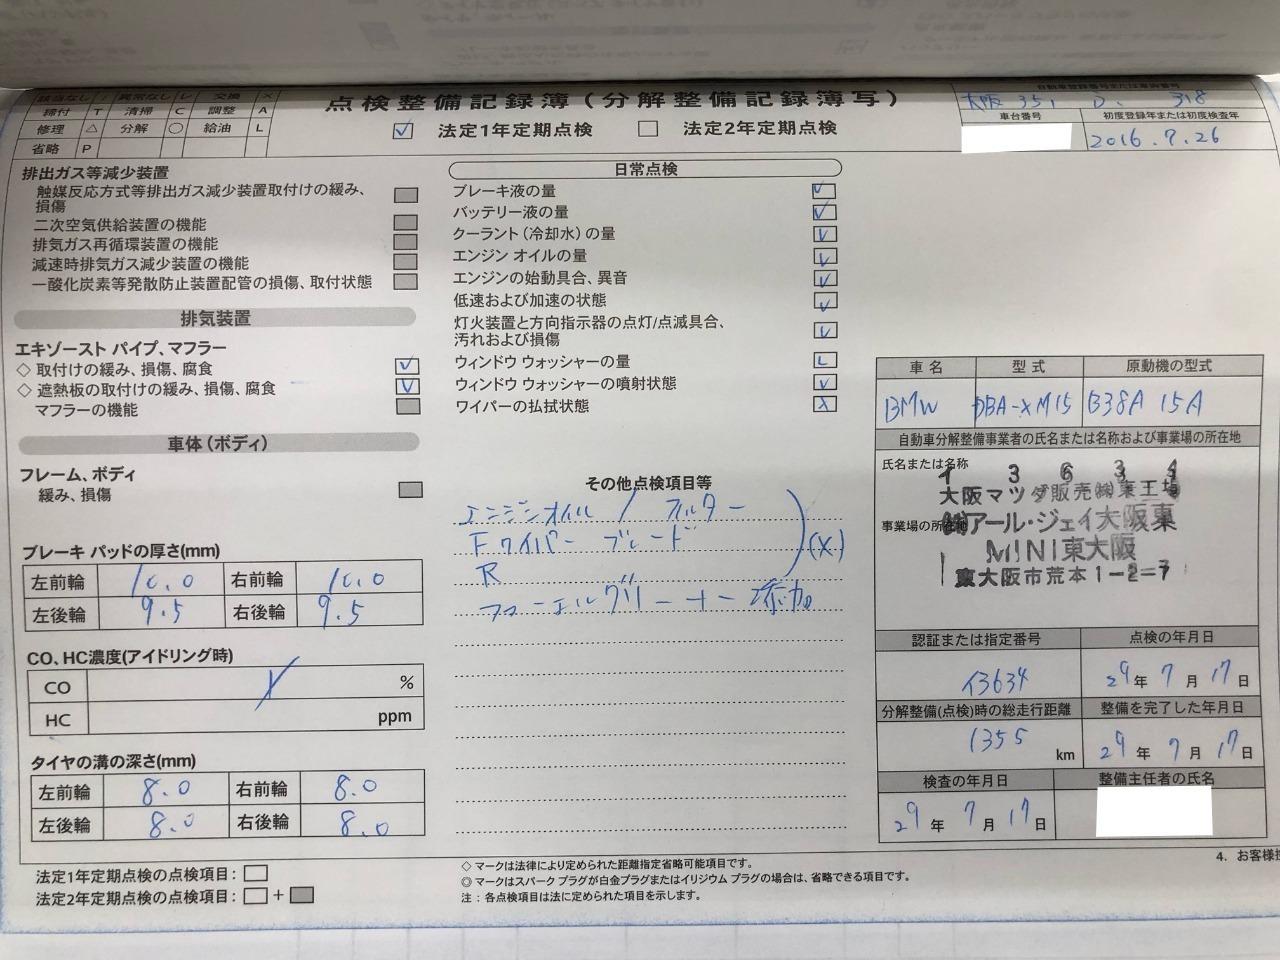 該当なし / 異常なし レ 交換 ×
締付 T 清掃 C 調整 A
修理 △ 分解 ○ 給油 L
省略 P
点検整備記録簿(分解整備記録簿写)
✓ 法定1年定期点検 法定2年定期点検
自動車登録番号または車両番号
大阪 351 318
車台番号 初度登録年または初度検査年
2016.7.26
排出ガス等減少装置
触媒反応方式等排出ガス減少装置取付けの緩み、
損傷
二次空気供給装置の機能
排気ガス再循環装置の機能
減速時排気ガス減少装置の機能
一酸化炭素等発散防止装置配管の損傷、取付状態
排気装置
エキゾースト パイプ、マフラー
◇ 取付けの緩み、損傷、腐食 レ
◇ 遮熱板の取付けの緩み、損傷、腐食 レ
マフラーの機能
車体(ボディ)
フレーム、ボディ
緩み、損傷
ブレーキ パッドの厚さ(mm)
左前輪 10.0 右前輪 10.0
左後輪 9.5 右後輪 9.5
CO、HC濃度(アイドリング時)
CO %
HC ppm
タイヤの溝の深さ(mm)
左前輪 8.0 右前輪 8.0
左後輪 8.0 右後輪 8.0
法定1年定期点検の点検項目:
法定2年定期点検の点検項目: +
日常点検
ブレーキ液の量 レ
バッテリー液の量 レ
クーラント(冷却水)の量 レ
エンジン オイルの量 レ
エンジンの始動具合、異音 レ
低速および加速の状態 レ
灯火装置と方向指示器の点灯/点滅具合、
汚れおよび損傷 レ
ウィンドウ ウォッシャーの量 L
ウィンドウ ウォッシャーの噴射状態 レ
ワイパーの払拭状態 X
その他点検項目等
エンジンオイル / フィルター
Fワイパー ブレード (X)
R
フューエルクリーナー添加
◇ マークは法律により定められた距離指定省略可能項目です。
◎ マークはスパーク プラグが白金プラグまたはイリジウム プラグの場合は、省略できる項目です。
注:各点検項目は法に定められた項目を示します。
車名 型式 原動機の型式
BMW DBA-XM15 B38A 15A
自動車分解整備事業者の氏名または名称および事業場の所在地
氏名または名称
1 3 6 3 4
大阪マツダ販売㈱東工場
事業場の所在地
㈱アール・ジェイ大阪東
MINI東大阪
東大阪市荒本1-2-7
認証または指定番号 点検の年月日
13634 29年 7月 17日
分解整備(点検)時の総走行距離 整備を完了した年月日
1355 km 29年 7月 17日
検査の年月日 整備主任者の氏名
29年 7月 17日
4. お客様